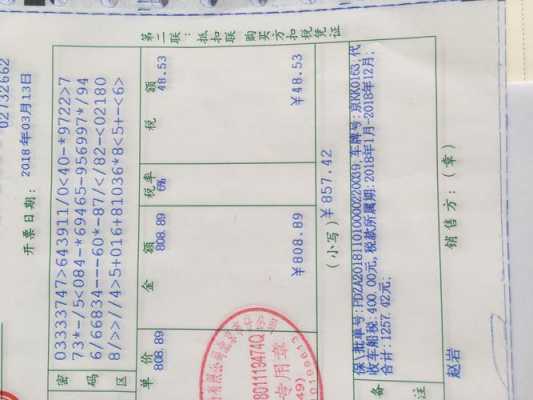 02732662
开票日期: 2018年03月13日
密码区
03333747>643911/0<40-*9722>7
73*-/5<084-*69465-956997*/94
6/66834---60*-87/</82-<02180
8/>>//4>5+016+81036*8<5+-<6>
单价 金额 税率 税额
808.89 808.89 6% 48.53
¥808.89 ¥48.53
(小写) ¥857.42
备注
保(批)单号: PDZA201811010000220039, 车牌号: 京KK0163, 代
收车船税: 400.00元, 税款所属期: 2018年1月-2018年12月;
合计: 1257.42元;
赵岩 销售方: (章)
第二联: 抵扣联 购买方扣税凭证
专用章